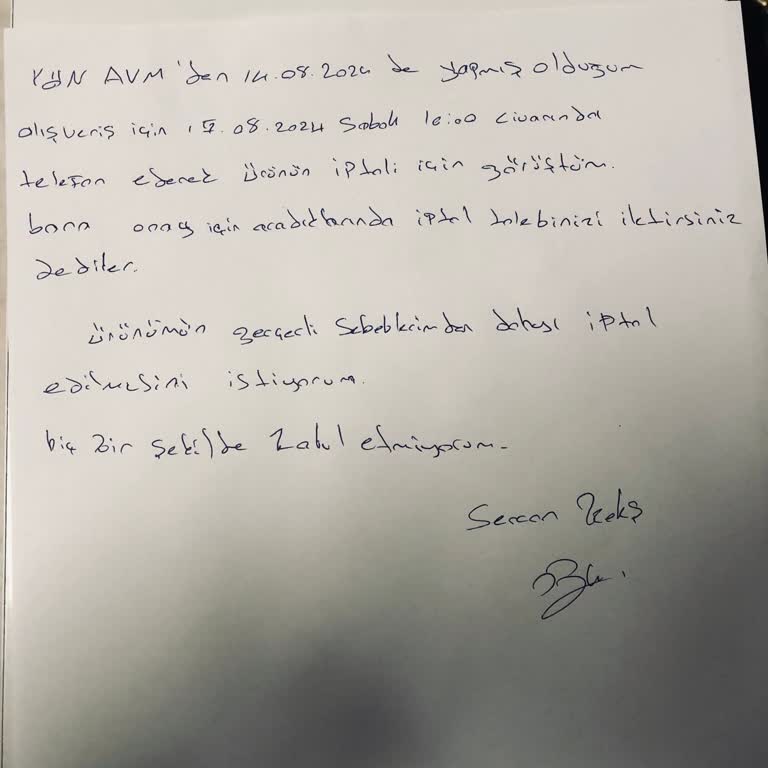 YÖN AVM'den 14.08.2024 de yapmış olduğum
alışveriş için 15.08.2024 Sabah 10:00 civarında
telefon ederek ürünün iptali için görüştüm.
bana onay için aradıklarında iptal talebinizi iletirsiniz
dediler.
ürünümün gerçekli sebeblerimden dolayı iptal
edilmesini istiyorum.
hiç bir şekilde kabul etmiyorum.
Sercan